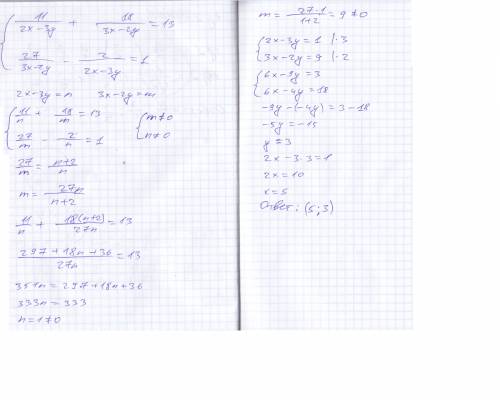 11/(2x-3y) + 18/(3x-2y) = 13
27/(3x-2y) - 2/(2x-3y) = 1
2x-3y=n 3x-2y=m
11/n + 18/m = 13 m≠0
27/m - 2/n = 1 n≠0
27/m = (n+2)/n
m = 27n/(n+2)
11/n + 18(n+2)/27n = 13
(297+18n+36)/27n = 13
351n = 297+18n+36
333n = 333
n=1≠0
m = 27·1/(1+2) = 9 ≠0
2x-3y = 1 |·3
3x-2y = 9 |·2
6x-9y = 3
6x-4y = 18
-9y-(-4y) = 3-18
-5y = -15
y = 3
2x-3·3=1
2x=10
x=5
Ответ: (5;3)